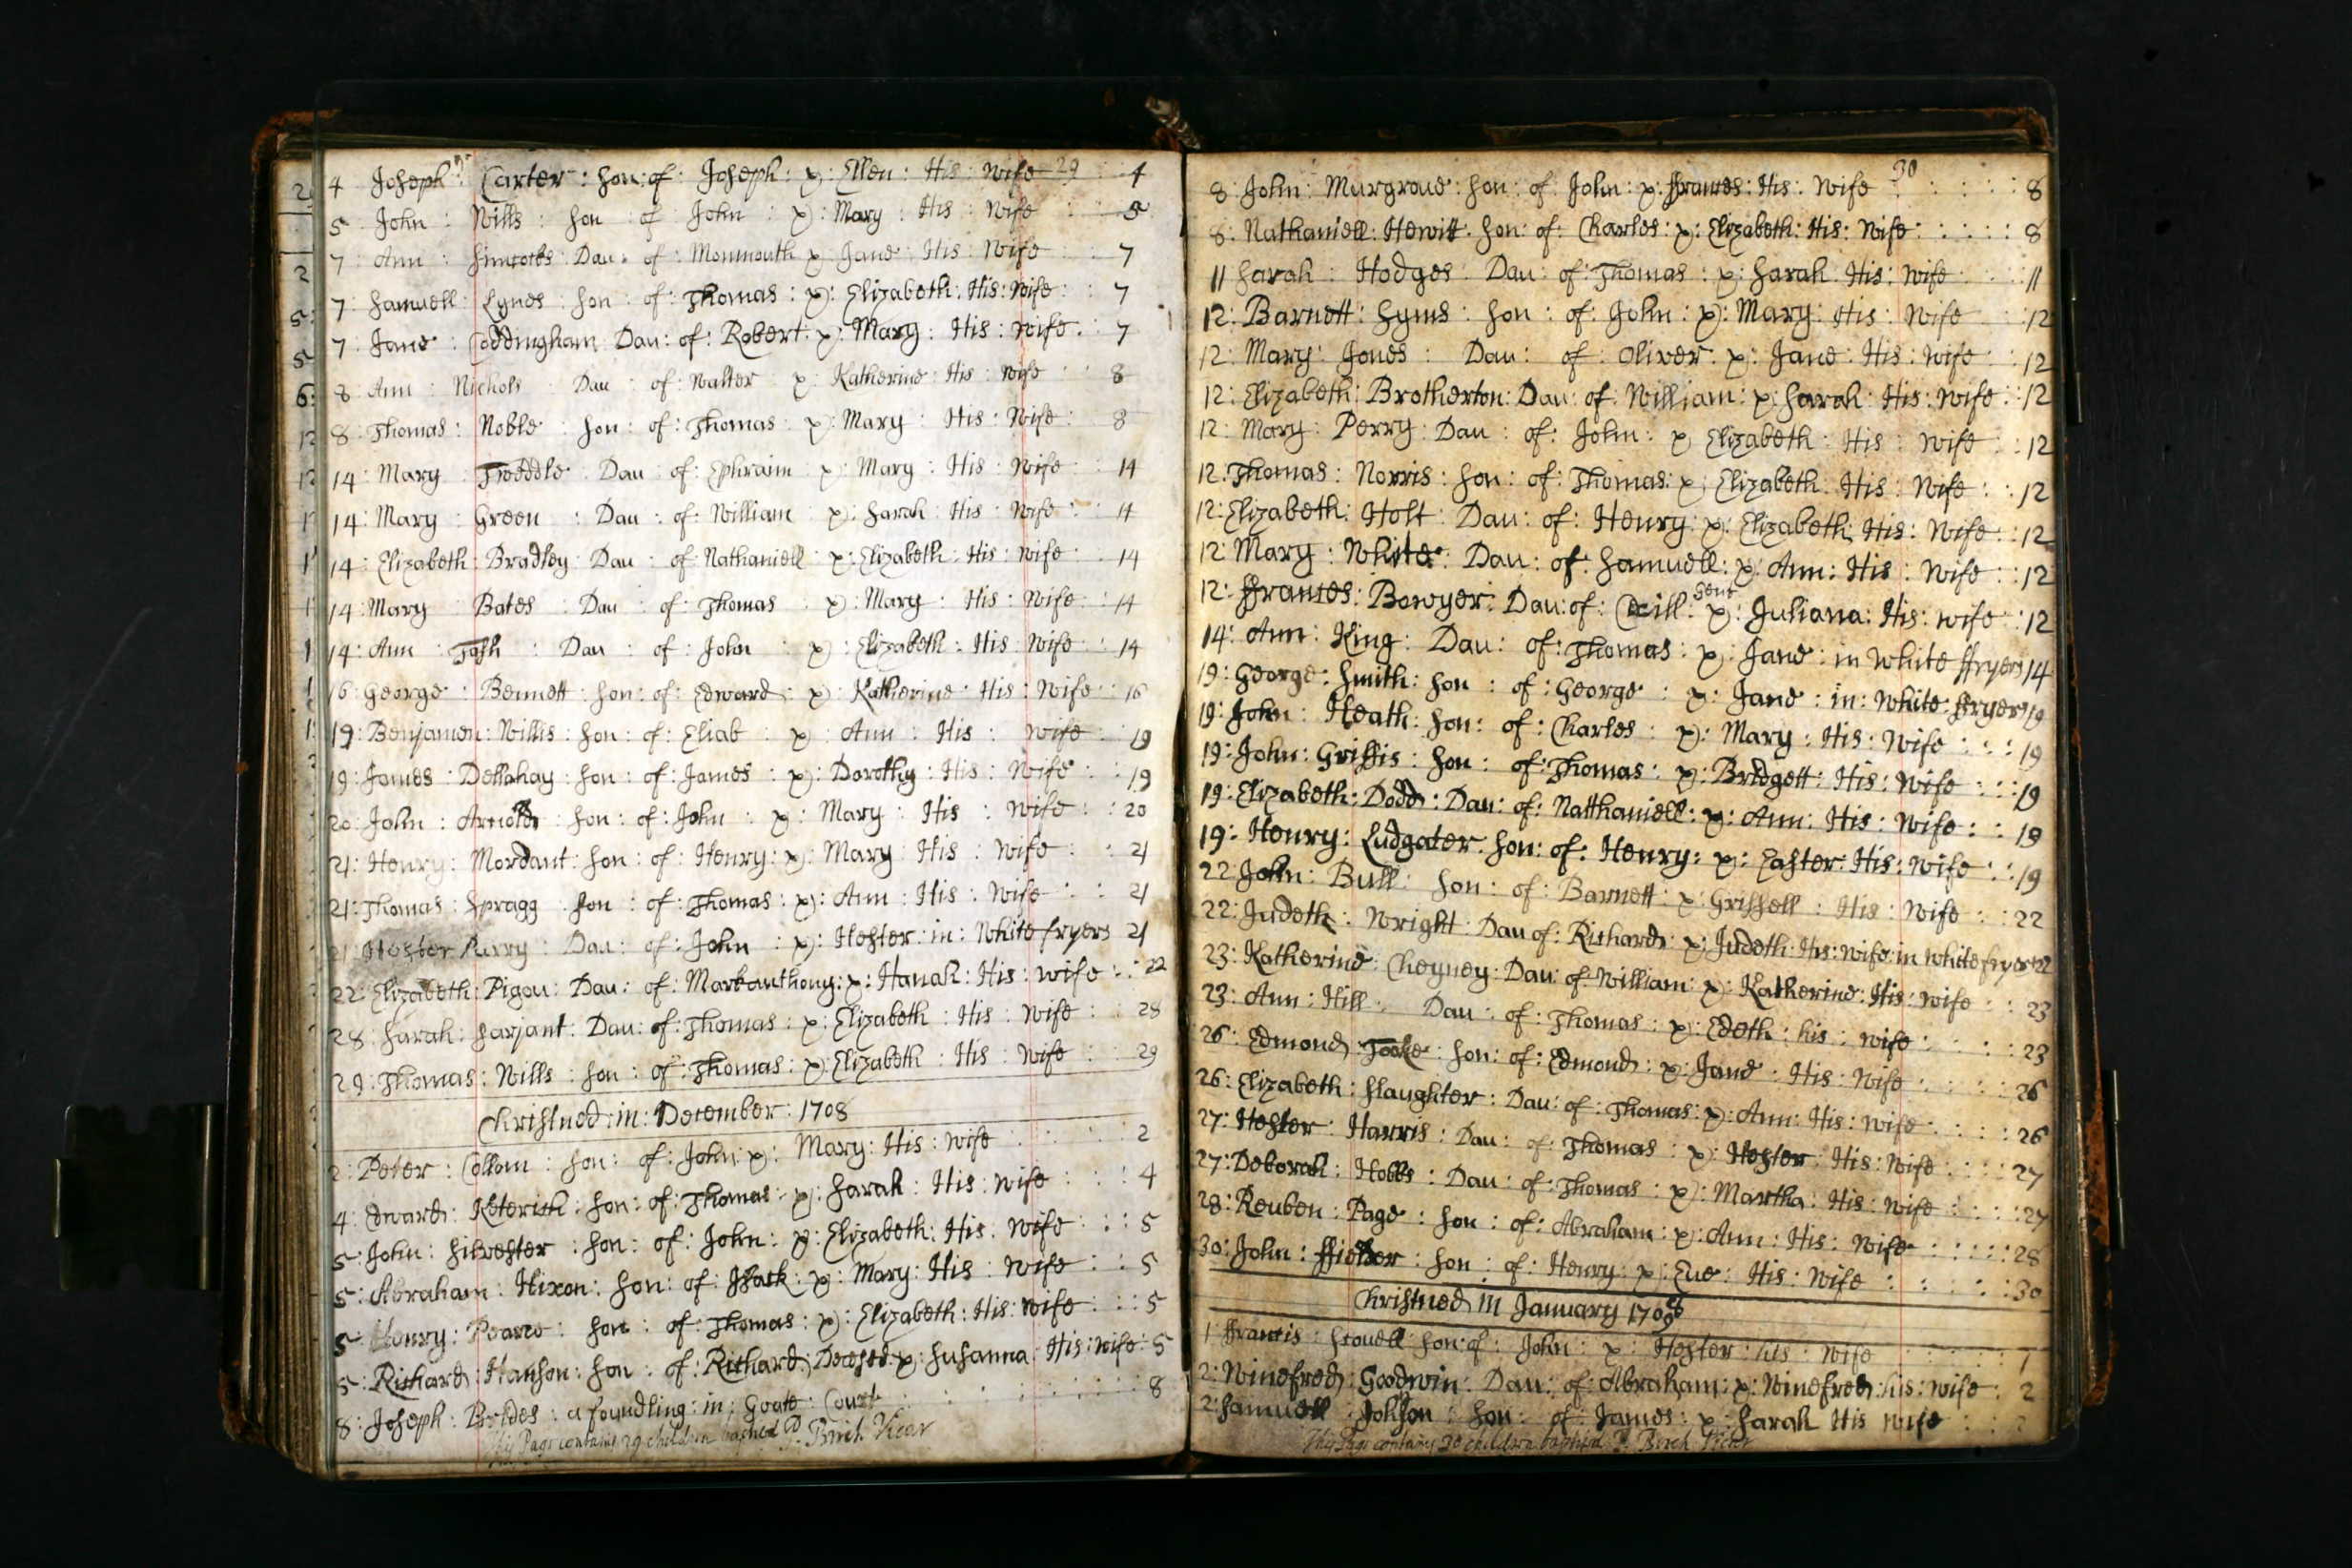 4 Joseph : Carter : Son : of : Joseph : & : Ellen : His : Wife 29 : 4
5 John : Wills : Son : of : John : & : Mary : His : Wife : : 5
7 : Ann : Dau : of : Monmouth & Jane : His : Wife : : 7
7 : Samuell : Lynes : Son : of : Thomas : & : Elizabeth : His : Wife : : 7
7 : Jane : Coddingham Dau : of : Robert : & : Mary : His : Wife : : 7
8 Ann : Nichols : Dau : of : Walter : & : Katherine : His : Wife : : 8
8 : Thomas : Noble : Son : of : Thomas : & : Mary : His : Wife : 8
14 : Mary : Treddle : Dau : of : Ephraim : & : Mary : His : Wife : : 14
14 : Mary : Green : Dau : of : William : & : Sarah : His : Wife : : 14
14 : Elizabeth : Bradley : Dau : of Nathaniell : & : Elizabeth : His : Wife : : 14
14 : Mary : Bates : Dau : of : Thomas : & : Mary : His : Wife : : 14
14 : Ann : Tash : Dau : of : John : & : Elizabeth : His : Wife : : 14
16 : George : Bennett : Son : of : Edward : & : Katherine : His : Wife : : 16
19 : Benjamen : Willis : Son : of : Eliab : & : Ann : His : Wife : : 19
19 : James : Dellahay : Son : of : James : & : Dorothy : His : Wife : : 19
20 : John : Arnold : Son : of : John : & : Mary : His : Wife : : 20
21 : Henry : Mordant : Son : of : Henry : & : Mary : His : Wife : : 21
21 : Thomas : Spragg : Son : of : Thomas : & : Ann : His : Wife : : 21
21 Hester Purry : Dau : of : John : & : Hester : in : White fryers 21
22 : Elizabeth : Pigou : Dau : of : Markanthony : & : Hanah : His : Wife : : 22
28 : Sarah : Sarjant : Dau : of : Thomas : & : Elizabeth : His : Wife : : 28
29 : Thomas : Wills : Son : of : Thomas : & : Elizabeth : His : Wife : : 29
Christned : in : December : 1708
2 : Peter : Collom : Son : of : John : & : Mary : His : Wife : : : 2
4 : Edward : Keterich : Son : of : Thomas : & : Sarah : His : Wife : : : 4
5 : John : Silvester : Son : of : John : & : Elizabeth : His : Wife : : : 5
5 : Abraham : Hixon : Son : of : Isack : & : Mary : His : Wife : : 5
5 : Henry : Pearce : Son : of : Thomas : & : Elizabeth : His : Wife : : : 5
5 : Richard : Hanson : Son : of : Richard : Decesed : & : Susanna : His : Wife : 5
8 : Joseph : Brides : a foundling : in : Goate : Court : : : 8
This Page contains 29 children baptized P. Birch Vicar
30
8 : John : Murgrove : Son : of : John : & : ffrances : His : Wife : : : 8
8 : Nathaniell : Hewitt : Son : of : Charles : & : Elizabeth : His : Wife : : : : 8
11 Sarah : Hodges : Dau : of : Thomas : & : Sarah : His : Wife : : : 11
12 : Barnett : Syms : Son : of : John : & : Mary : His : Wife : : 12
12 : Mary : Jones : Dau : of : Oliver : & : Jane : His : Wife : : 12
12 : Elizabeth : Brotherton : Dau : of : William : & : Sarah : His : Wife : : 12
12 : Mary : Perry : Dau : of : John : & : Elizabeth : His : Wife : : 12
12 : Thomas : Norris : Son : of : Thomas : & : Elizabeth : His : Wife : : 12
12 : Elizabeth : Holt : Dau : of : Henry : & : Elizabeth : His : Wife : : 12
12 : Mary : White : Dau : of : Samuell : & : Ann : His : Wife : : 12
12 : ffrances : Bowyer : Dau : of : Cecill : Gent & : Juliana : His : Wife : : 12
14 : Ann : King : Dau : of : Thomas : & : Jane : in White ffryers 14
19 : George : Smith : Son : of : George : & : Jane : in : White : ffryers 19
19 : John : Heath : Son : of : Charles : & : Mary : His : Wife : : : 19
19 : John : Griffis : Son : of : Thomas : & : Bridgett : His : Wife : : : 19
19 : Elizabeth : Dodd : Dau : of : Natthaniell : & : Ann : His : Wife : : 19
19 : Henry : Ludgater : Son : of : Henry : & : Easter : His : Wife : : : 19
22 : John : Bull : Son : of : Barnett : & : Grissell : His : Wife : : 22
22 : Judeth : Wright : Dau of : Richard : & : Judeth : His : Wife : in White fryers 22
23 : Katherine : Cheyney : Dau : of : William : & : Katherine : His : Wife : : 23
23 : Ann : Hill : Dau : of : Thomas : & : Edeth : his : Wife : : : 23
26 : Edmond : Tooke : Son : of : Edmond : & : Jane : His : Wife : : : : 26
26 : Elizabeth : Slaughter : Dau : of : Thomas : & : Ann : His : Wife : : : : 26
27 : Hester : Harris : Dau : of : Thomas : & : Hester : His : Wife : : : : 27
27 : Deborah : Hobbs : Dau : of : Thomas : & : Martha : His : Wife : : : : 27
28 : Reuben : Page : Son : of : Abraham : & : Ann : His : Wife : : : : : 28
30 : John : ffisher : Son : of : Henry : & : Eve : His : Wife : : : : 30
Christned in January 1708
1 ffrancis : Stovell : Son : of : John : & : Hester : his : Wife : : : : 1
2 : Winefred : Goodwin : Dau : of : Abraham : & : Winefred : his : Wife : 2
2 : Samuell : Johson : Son : of : James : & : Sarah His Wife : : 2
This Page contains 30 children baptized P. Birch Vicar